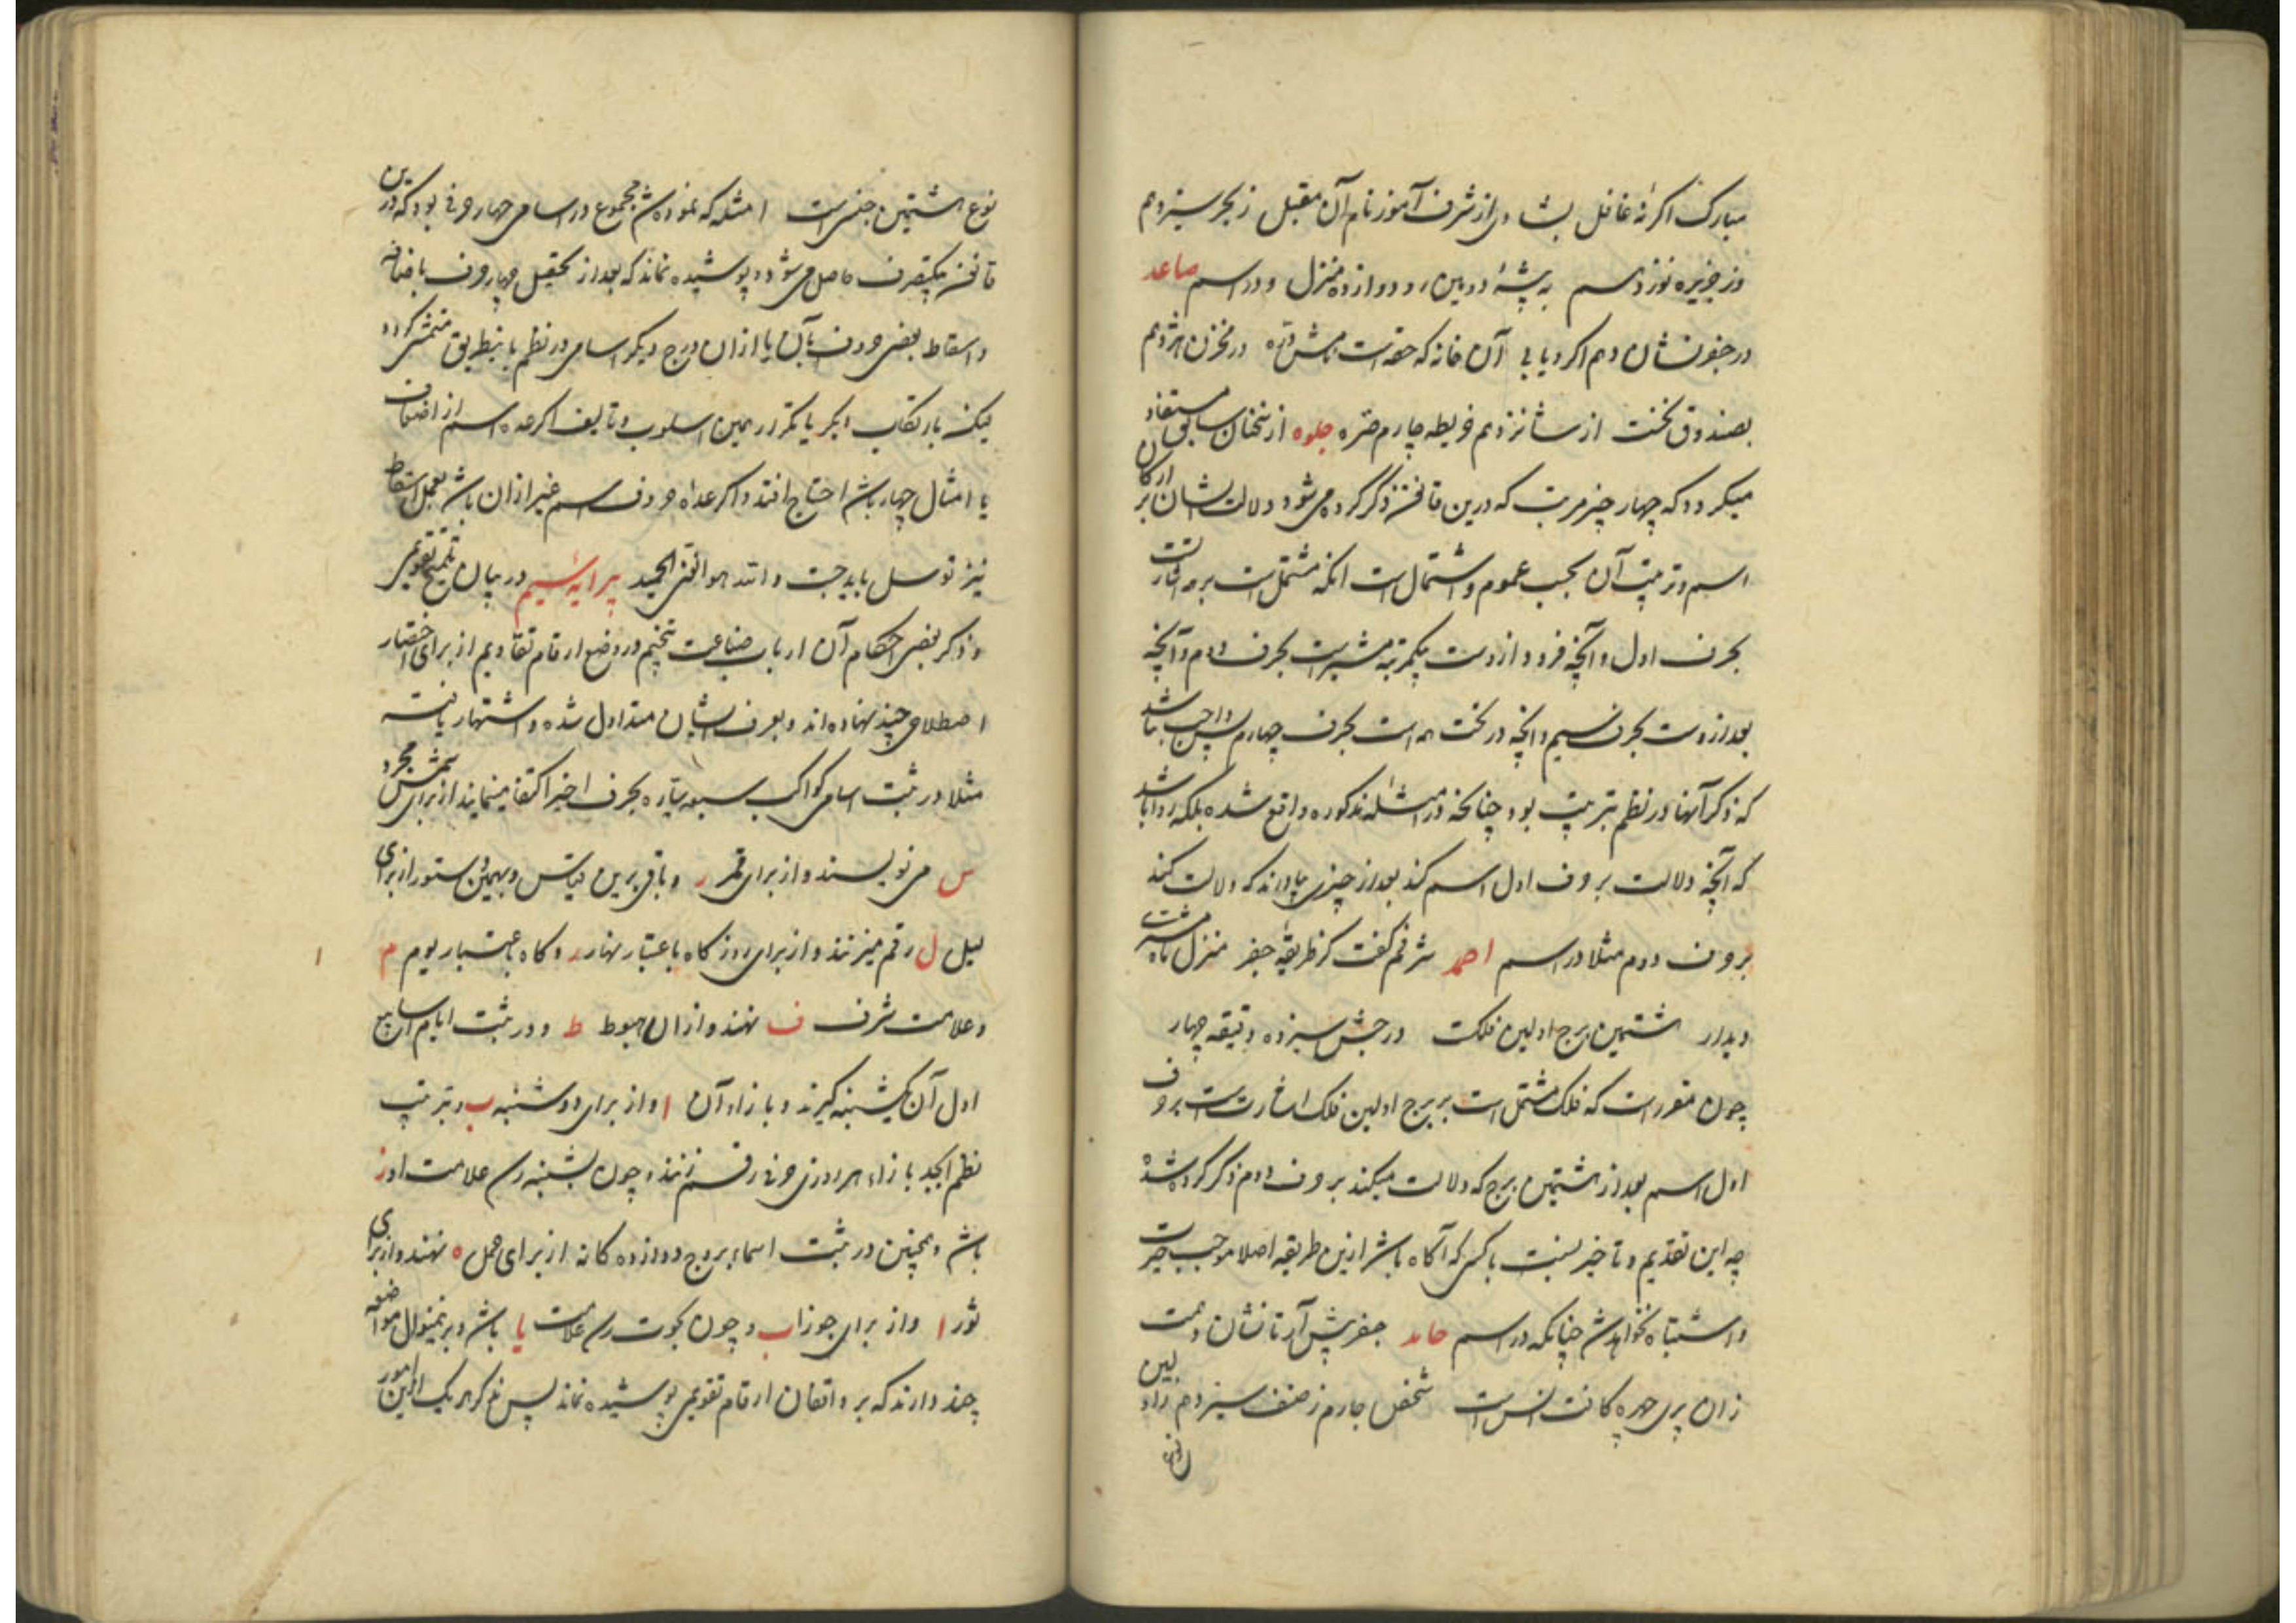 مبارک اکر نه غافل بشادی از شرف آموز نام آن مقبل ز بحر سیزدهم
وز جزیره نوزدهم به پیشهٔ دومین رو دوازده منزل و در اسم صاعد
در جفون نشان دهم اکر دیابی آن خانه که حقه است در مخزن هژدهم
بصندوق نخست از شانزدهم خریطه چارم صره جلوه از سخنان سابق مستفاد
میکردد که چهار چیز مرتب که درین قانون ذکر کرده می شود دلالت ایشان بر ارکان
اسم و ترتیب آن بحسب عموم و اشتمال است آنکه مشتمل است بر همه اشارتست
بحرف اول و آنچه فرود ازوست بیکمرتبه مشیر است بحرف دوم و آنچه
بعد ازوست بحرف سیم و آنچه در تحت همه است بحرف چهارم پس واجب نباشد
که ذکر آنها در نظم بترتیب بود چنانکه در امثله مذکوره واقع شده بلکه روا باشد
که آنچه دلالت بر حرف اول اسم کند بعد از چیزی بیاورند که دلالت کند
بر حرف دوم مثلا در اسم احمد شرفم کفت کز طریقه جفر منزل ماه
دیدار هشتمین برج اولین فلکت درجش سیزده دقیقه چهار
چون مقررست که فلک مشتمل است بر برج اولین فلک اشارتست بر حرف
اول اسم بعد از هشتمین برج که دلالت میکند بر حرف دوم ذکر کرده شد
چه این تقدیم و تاخیر نسبت با کسی که آکاه باشد ازین طریقه اصلا موجب حیرت
و اشتباه نخواهد شد چنانکه در اسم حامد جفر پیش آر تا نشان دهمت
زان پری چهره کافت انس است شخص چارم ز صنف سیزدهم زاولین
نوع هشتمین جنس است امثله که نموده شد مجموع در اسامی چهار حرفی بود که درین
قانون بیکتصرف حاصل می شود و پوشیده نماند که بعد از تحصیل چهار حرف باضافه
و اسقاط بعضی حروف بآن یا ازان درج دیکر اسامی در نظم باینطریق متمشی کردد
لیکن بارتکاب دیکر یا تکرار همین اسلوب و تالیف اکر عده اسم از اضعاف
یا امثال چهار باشد احتیاج افتد و اکر عده حروف اسم غیر ازان باشد بعمل اسقاط
نیز توسل باید جست والله هو الغنی الحمید پیرایهٔ سیم در بیان تلمیح تقویمی
و ذکر بعضی احکام آن ارباب صناعت تنجیم در وضع ارقام تقاویم از برای اختصار
اصطلاحی چند نهاده‌اند و بعرف ایشان متداول شده و اشتهار یافته
مثلا در ثبت اسامی کواکب سبعه سیاره بحرف اخیر اکتفا مینمایند از برای شمس مجرد
س می نویسند و از برای قمر ر و باقی برین قیاس و بهمین دستور از برای
لیل ل رقم میزنند و از برای روز کاه باعتبار نهار ر و کاه باعتبار یوم م
و علامت شرف ف نهند و ازان هبوط ط و در ثبت ایام اسابیع
اول آن یکشنبه کیرند و بازاء آن ا و از برای دوشنبه ب و بترتیب
نظم ابجد بازاء هر روزی حرفی رقم زنند و چون بشنبه رسد علامت او ز
باشد و همچنین در ثبت اسماء بروج دوازده کانه از برای حمل ه نهند و از برای
ثور ا و از برای جوزا ب و چون بحوت رسد علامت یا باشد و برینمنوال مواضعه
چند دارند که بر واقفان ارقام تقویمی پوشیده نماند پس ذکر هر یک ازین امور